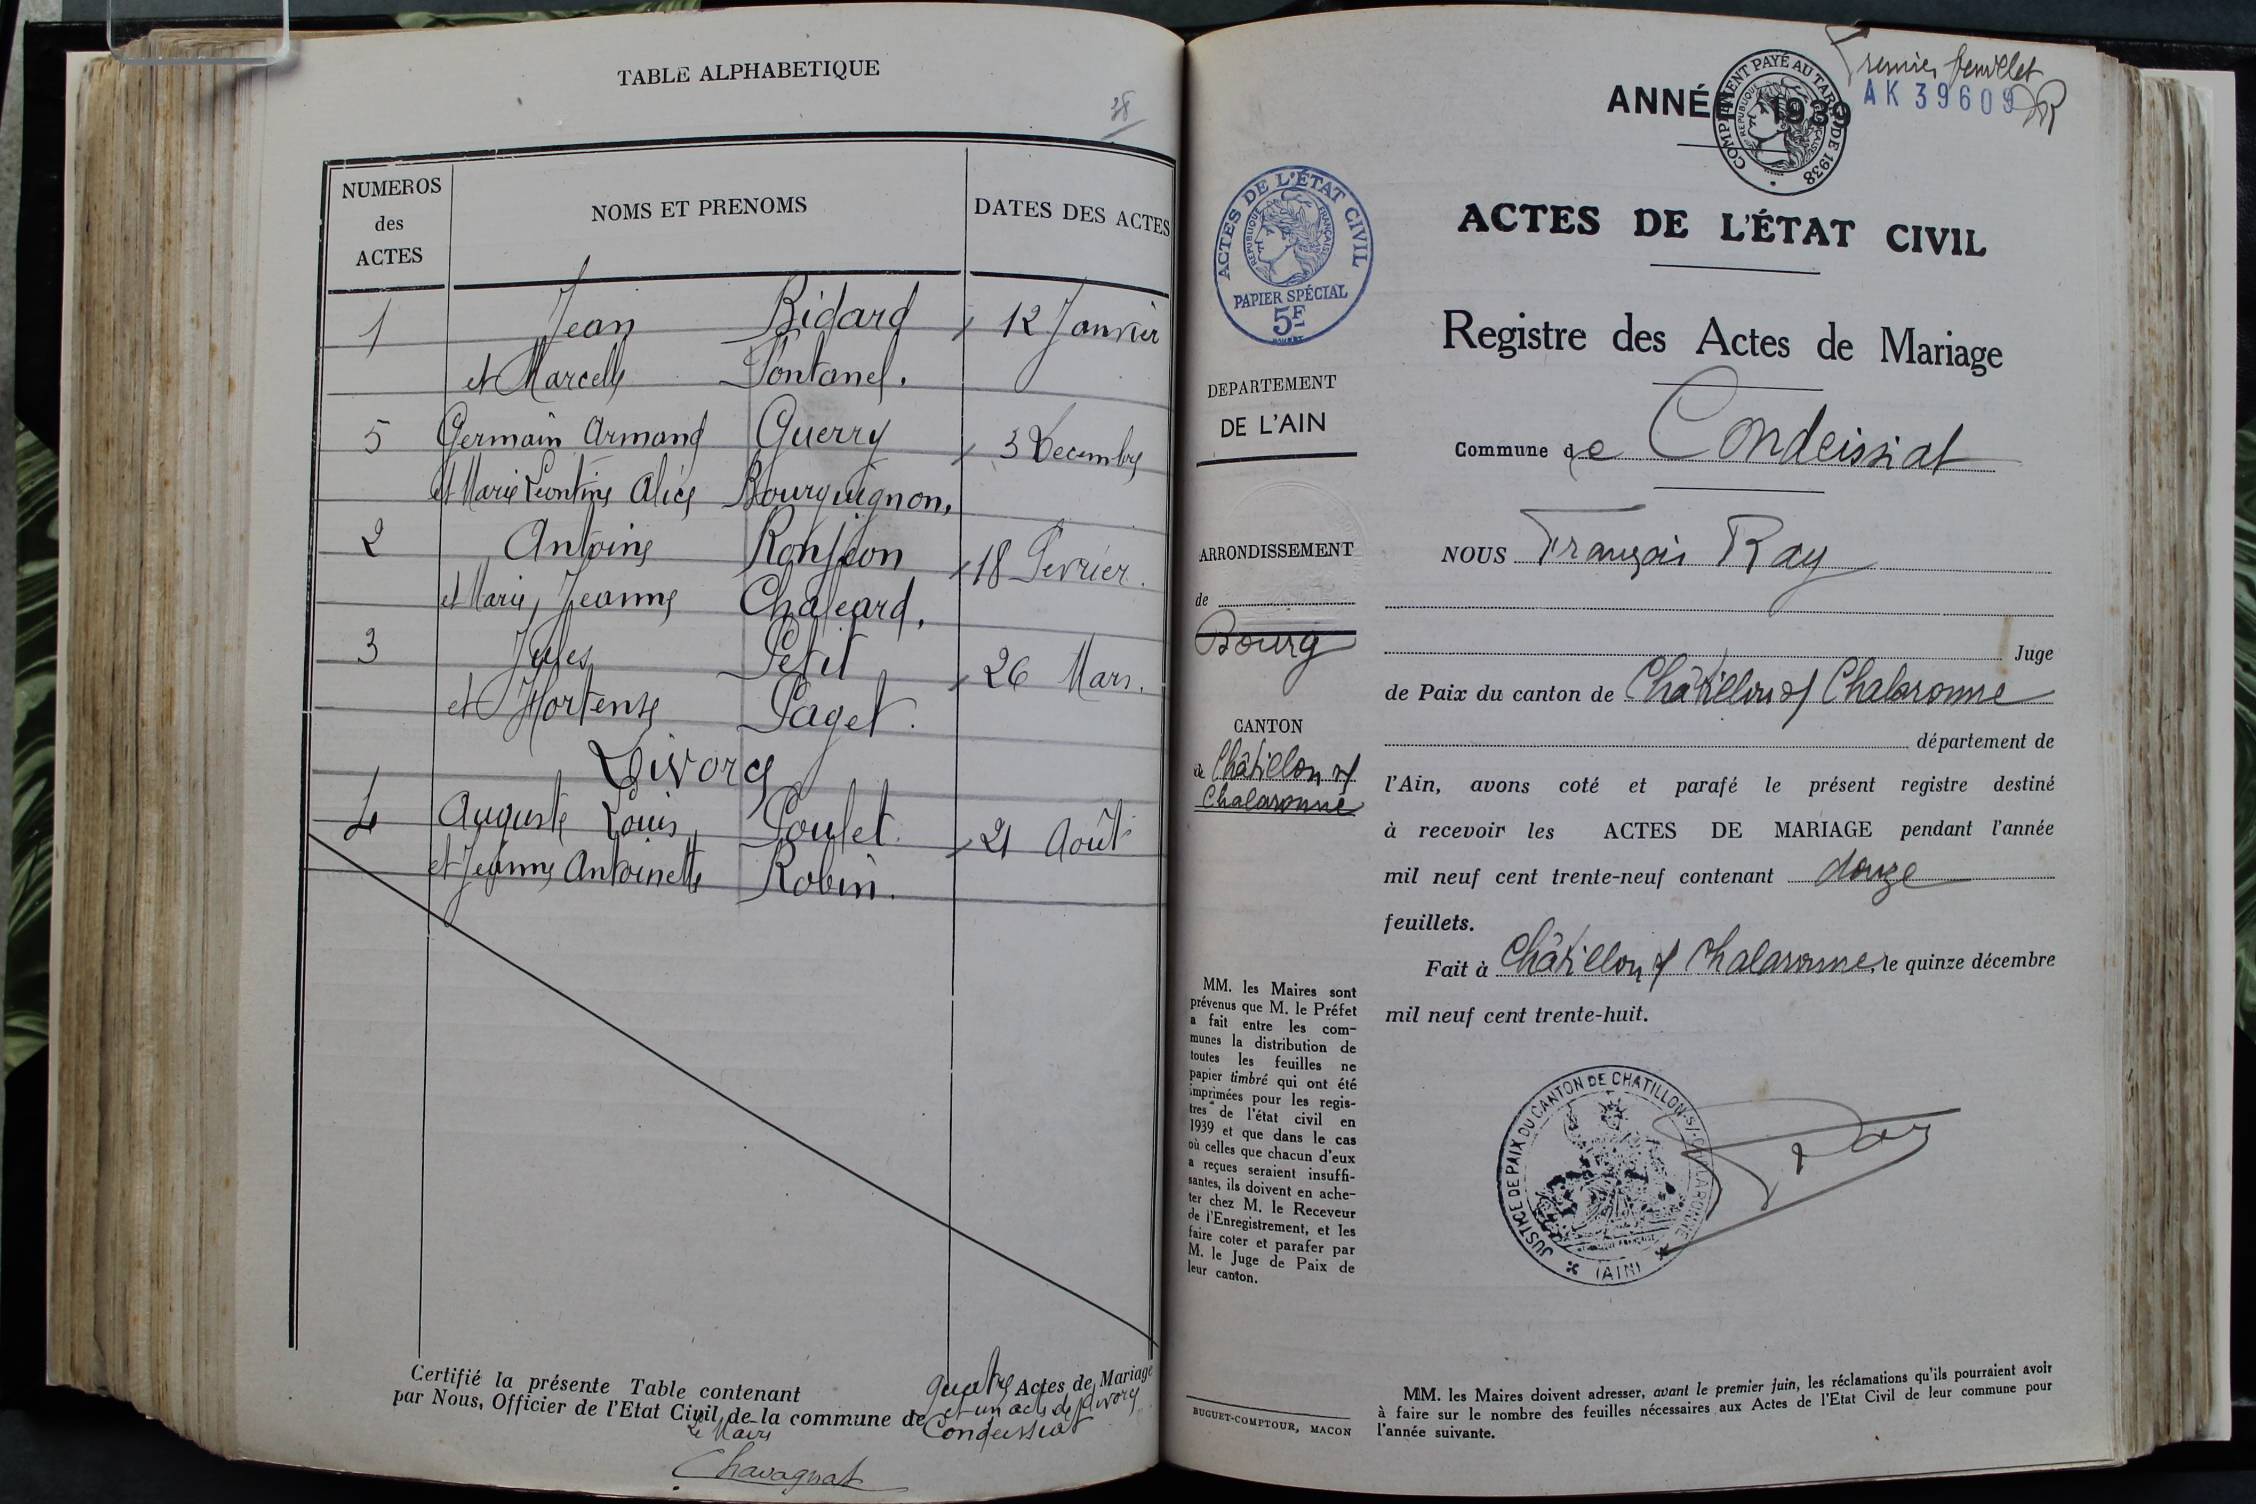 TABLE ALPHABETIQUE
38
NUMEROS des ACTES
NOMS ET PRENOMS
DATES DES ACTES
1 Jean Bidard 12 Janvier
et Marcelle Fontanel.
5 Germain Armand Guerry 3 Decembre
et Marie Leontine Alice Bourguignon.
2 Antoine Ronjon 18 Fevrier.
et Marie Jeanne Chaleard.
3 Jules Petit 26 Mars.
et Hortense Paget.
Divorce
4 Auguste Louis Poulet 21 Août
et Jeanne Antoinette Robin.
Certifié la présente Table contenant quatre Actes de Mariage
et un acte de divorce
par Nous, Officier de l'Etat Civil de la commune de Condeissiat
Le Maire
Chavagnat
Premier feuillet
AK 39609
ANNÉE 1939
COMPLÉMENT PAYÉ AU TARIF DE 1938
RÉPUBLIQUE FRANÇAISE
ACTES DE L'ÉTAT CIVIL
RÉPUBLIQUE FRANÇAISE
PAPIER SPÉCIAL
5F
DEPARTEMENT
DE L'AIN
ARRONDISSEMENT
de
Bourg
CANTON
de Châtillon s/
Chalaronne
MM. les Maires sont
prévenus que M. le Préfet
a fait entre les com-
munes la distribution de
toutes les feuilles ne
papier timbré qui ont été
imprimées pour les regis-
tres de l'état civil en
1939 et que dans le cas
où celles que chacun d'eux
a reçues seraient insuffi-
santes, ils doivent en ache-
ter chez M. le Receveur
de l'Enregistrement, et les
faire coter et parafer par
M. le Juge de Paix de
leur canton.
BUGUET-COMPTOUR, MACON
ACTES DE L'ÉTAT CIVIL
Registre des Actes de Mariage
Commune de Condeissiat
NOUS François Ray
Juge
de Paix du canton de Châtillon s/ Chalaronne
département de
l'Ain, avons coté et parafé le présent registre destiné
à recevoir les ACTES DE MARIAGE pendant l'année
mil neuf cent trente-neuf contenant douze
feuillets.
Fait à Châtillon s/ Chalaronne, le quinze décembre
mil neuf cent trente-huit.
JUSTICE DE PAIX DU CANTON DE CHATILLON-S/-CHALARONNE
(AIN)
Ray
MM. les Maires doivent adresser, avant le premier juin, les réclamations qu'ils pourraient avoir
à faire sur le nombre des feuilles nécessaires aux Actes de l'Etat Civil de leur commune pour
l'année suivante.